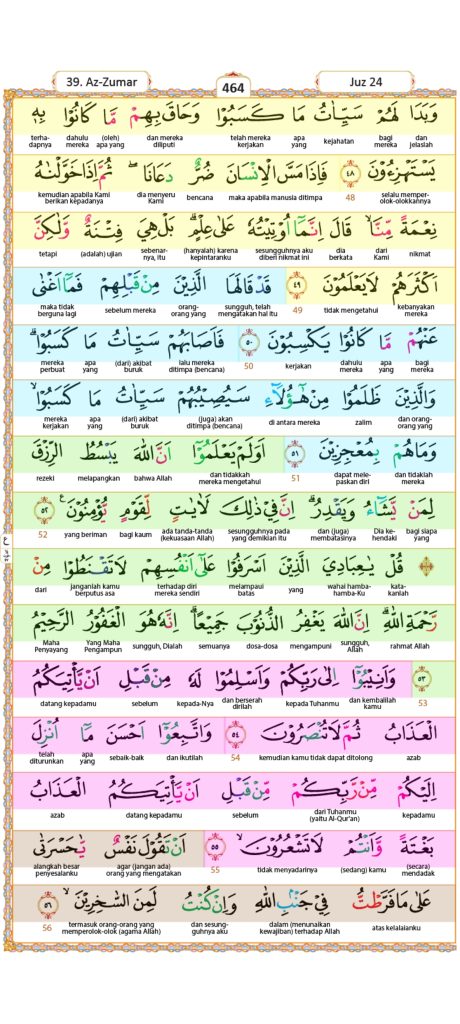 39. Az-Zumar
464
Juz 24
وَبَدَا لَهُمْ سَيِّاٰتُ مَا كَسَبُوْا وَحَاقَ بِهِمْ مَّا كَانُوْا بِهٖ
dan jelaslah bagi mereka kejahatan apa yang telah mereka kerjakan dan mereka diliputi (oleh) apa yang dahulu mereka terha-dapnya
يَسْتَهْزِءُوْنَ ٤٨ فَاِذَا مَسَّ الْاِنْسَانَ ضُرٌّ دَعَانَاۖ ثُمَّ اِذَا خَوَّلْنٰهُ
selalu memper-olok-olokkannya 48 maka apabila manusia ditimpa bencana dia menyeru Kami kemudian apabila Kami berikan kepadanya
نِعْمَةً مِّنَّاۙ قَالَ اِنَّمَآ اُوْتِيْتُهٗ عَلٰى عِلْمٍۗ بَلْ هِيَ فِتْنَةٌ وَّلٰكِنَّ
nikmat dari Kami dia berkata sesungguhnya aku diberi nikmat ini (hanyalah) karena kepintaranku sebenar-nya, itu (adalah) ujian tetapi
اَكْثَرَهُمْ لَا يَعْلَمُوْنَ ٤٩ قَدْ قَالَهَا الَّذِيْنَ مِنْ قَبْلِهِمْ فَمَآ اَغْنٰى
kebanyakan mereka tidak mengetahui 49 sungguh, telah mengatakan hal itu orang-orang yang sebelum mereka maka tidak berguna lagi
عَنْهُمْ مَّا كَانُوْا يَكْسِبُوْنَ ٥٠ فَاَصَابَهُمْ سَيِّاٰتُ مَا كَسَبُوْاۗ
bagi mereka apa yang dahulu mereka kerjakan 50 lalu mereka ditimpa (bencana) (dari) akibat buruk apa yang mereka perbuat
وَالَّذِيْنَ ظَلَمُوْا مِنْ هٰٓؤُلَاۤءِ سَيُصِيْبُهُمْ سَيِّاٰتُ مَا كَسَبُوْاۙ
dan orang-orang yang zalim di antara mereka (juga) akan ditimpa (bencana) (dari) akibat buruk apa yang mereka kerjakan
وَمَا هُمْ بِمُعْجِزِيْنَ ٥١ اَوَلَمْ يَعْلَمُوْٓا اَنَّ اللّٰهَ يَبْسُطُ الرِّزْقَ
dan tidaklah mereka dapat mele-paskan diri 51 dan tidakkah mereka mengetahui bahwa Allah melapangkan rezeki
لِمَنْ يَّشَاۤءُ وَيَقْدِرُۗ اِنَّ فِيْ ذٰلِكَ لَاٰيٰتٍ لِّقَوْمٍ يُّؤْمِنُوْنَ ࣖ ٥٢
bagi siapa yang Dia ke-hendaki dan (juga) membatasinya sesungguhnya pada yang demikian itu ada tanda-tanda (kekuasaan Allah) bagi kaum yang beriman 52
قُلْ يٰعِبَادِيَ الَّذِيْنَ اَسْرَفُوْا عَلٰٓى اَنْفُسِهِمْ لَا تَقْنَطُوْا مِنْ
kata-kanlah wahai hamba-hamba-Ku yang melampaui batas terhadap diri mereka sendiri janganlah kamu berputus asa dari
رَّحْمَةِ اللّٰهِۗ اِنَّ اللّٰهَ يَغْفِرُ الذُّنُوْبَ جَمِيْعًاۗ اِنَّهٗ هُوَ الْغَفُوْرُ الرَّحِيْمُ
rahmat Allah sungguh, Allah mengampuni dosa-dosa semuanya sungguh, Dialah Yang Maha Pengampun Maha Penyayang
٥٣ وَاَنِيْبُوْٓا اِلٰى رَبِّكُمْ وَاَسْلِمُوْا لَهٗ مِنْ قَبْلِ اَنْ يَّأْتِيَكُمُ
53 dan kembalilah kamu kepada Tuhanmu dan berserah dirilah kepada-Nya sebelum datang kepadamu
الْعَذَابُ ثُمَّ لَا تُنْصَرُوْنَ ٥٤ وَاتَّبِعُوْٓا اَحْسَنَ مَآ اُنْزِلَ
azab kemudian kamu tidak dapat ditolong 54 dan ikutilah sebaik-baik apa yang telah diturunkan
اِلَيْكُمْ مِّنْ رَّبِّكُمْ مِّنْ قَبْلِ اَنْ يَّأْتِيَكُمُ الْعَذَابُ
kepadamu dari Tuhanmu (yaitu Al-Qur'an) sebelum datang kepadamu azab
بَغْتَةً وَّاَنْتُمْ لَا تَشْعُرُوْنَۙ ٥٥ اَنْ تَقُوْلَ نَفْسٌ يّٰحَسْرَتٰى
(secara) mendadak (sedang) kamu tidak menyadarinya 55 agar (jangan ada) orang yang mengatakan alangkah besar penyesalanku
عَلٰى مَا فَرَّطْتُّ فِيْ جَنْۢبِ اللّٰهِ وَاِنْ كُنْتُ لَمِنَ السّٰخِرِيْنَۙ ٥٦
atas kelalaianku dalam (menunaikan kewajiban) terhadap Allah dan sesung-guhnya aku termasuk orang-orang yang memperolok-olok (agama Allah) 56